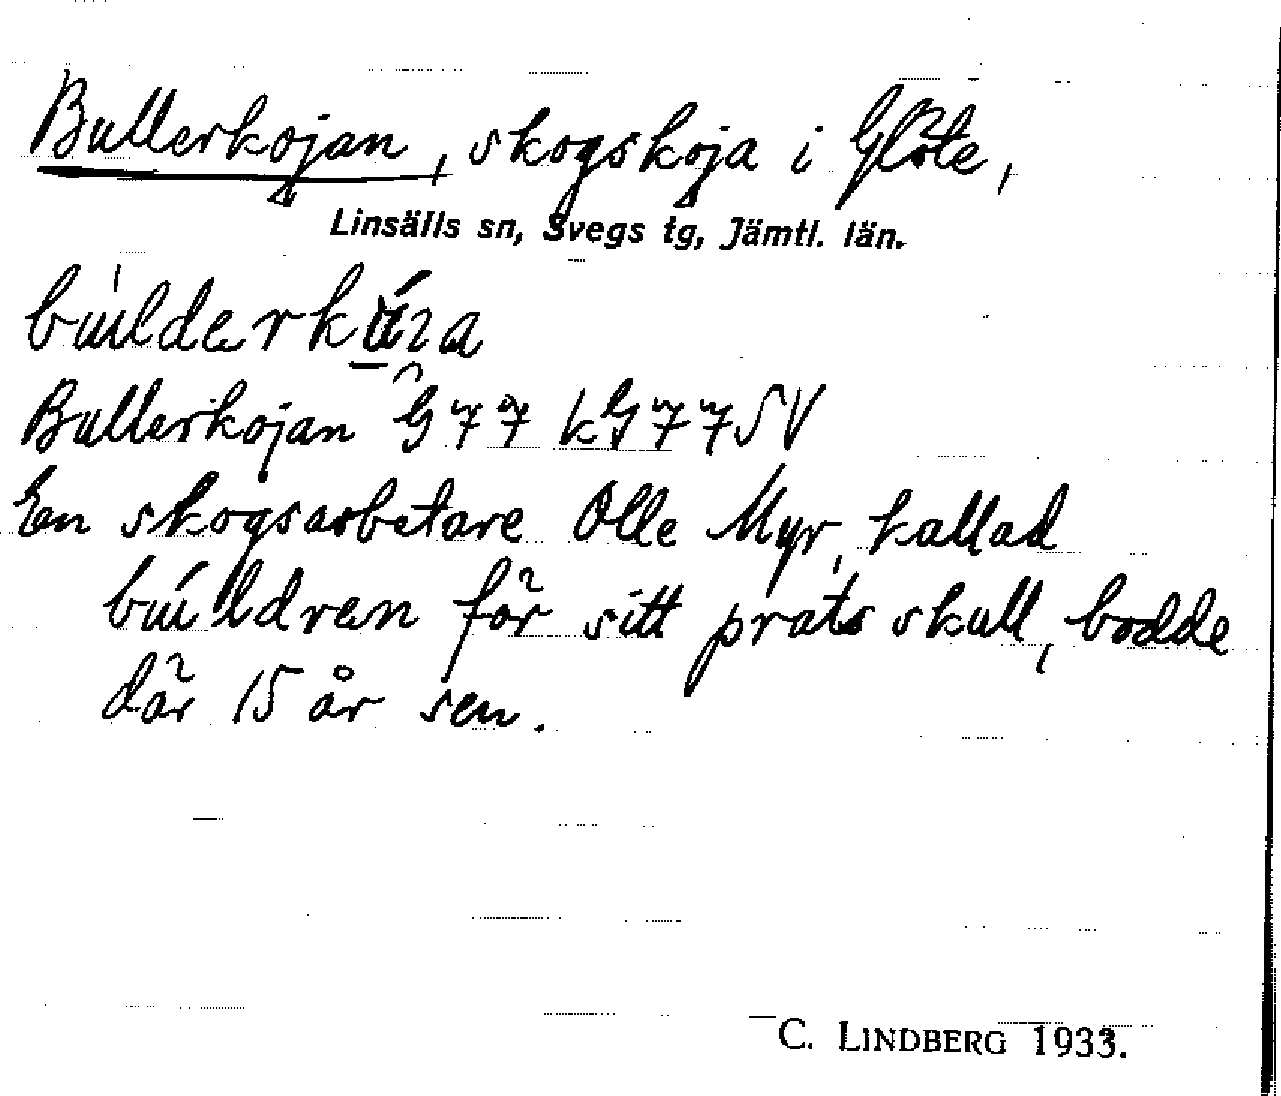 Bullerkojan, skogskoja i Glöte,
Linsälls sn, Svegs tg, Jämtl. län.
Bullerkojan G 77 kG77SV
En skogsarbetare Olle Myr, kallad
buildren för sitt prats skull, bodde
där 15 år sen.
C. LINDBERG 1933.